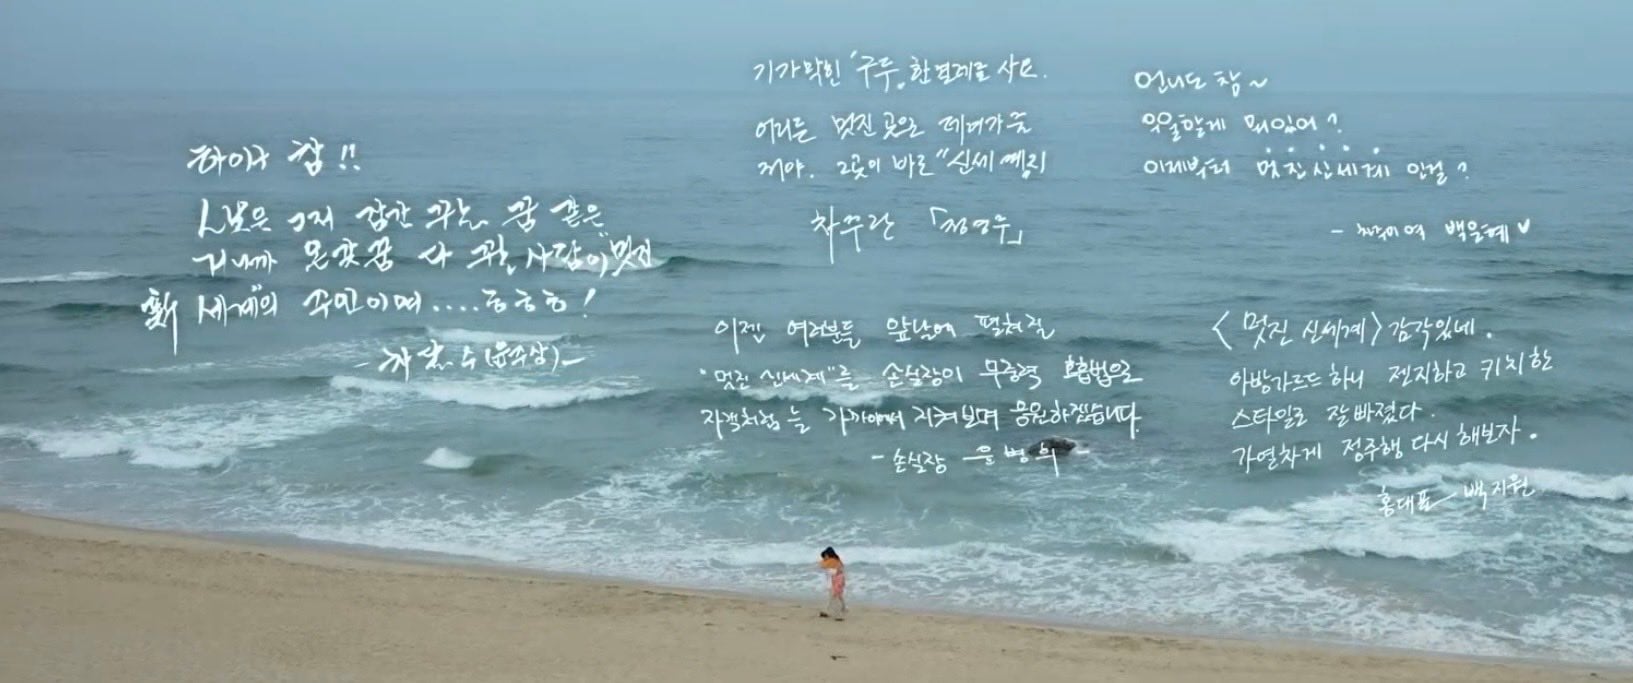 하이구 참!!
人생은 그저 잠깐 꾸는 꿈 같은
거니까 온갖 꿈 다 꾸는 사람이 "멋진
新 세계"의 주인이며....흐흐흐!
기가 막힌 '구두' 한 켤레를 사요.
어디든 멋진 곳으로 데려가줄
거야. 그곳이 바로 "신세계"
차주란 「정영주」
언니도 참~
우울할게 뭐있어?
이제부터 멋진신세계 인걸?
백은혜
이젠 여러분들 앞날에 펼쳐질
"멋진 신세계"를 손실장이 무중력 호흡법으로
자객처럼 늘 가까이에서 지켜보며 응원하겠습니다.
- 손실장 윤병희 -
<멋진 신세계> 감각있네.
아방가르드하니 젠지하고 키치한
스타일로 잘 빠졌다.
가열차게 정주행 다시 해보자.
홍대표 백지원